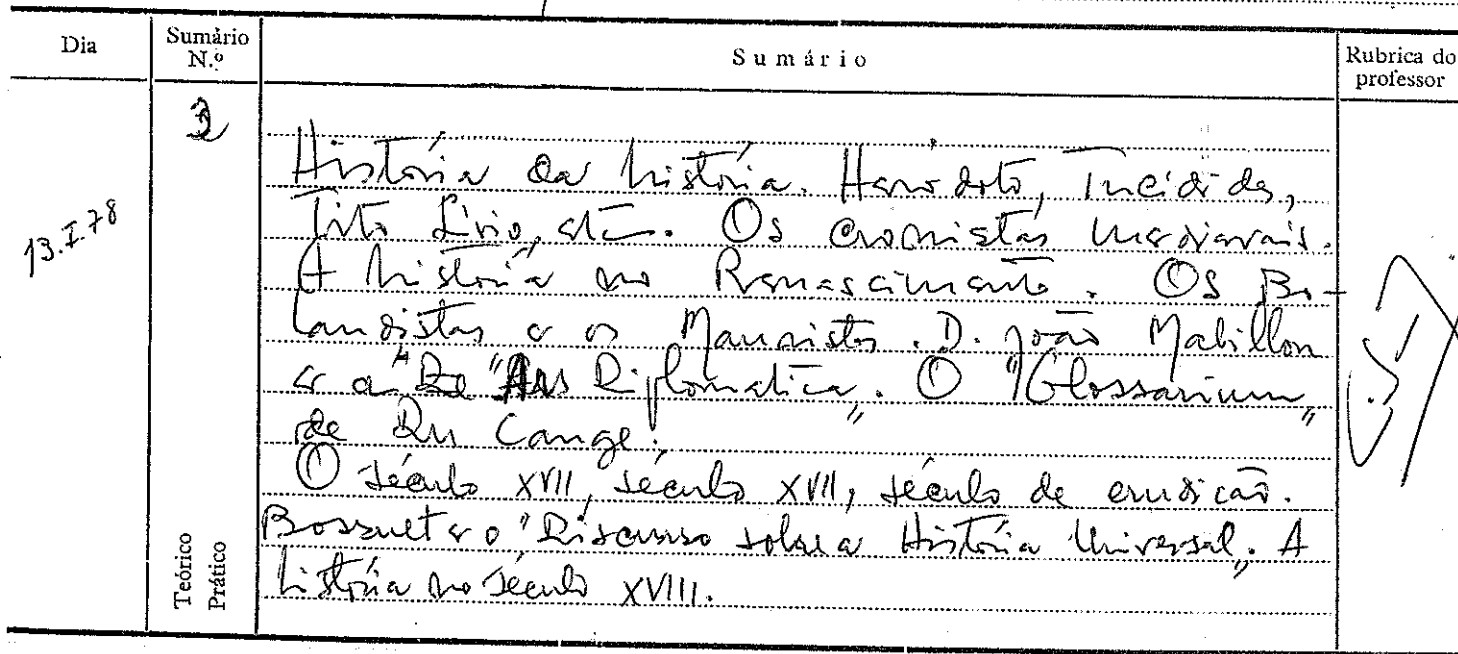 Dia Sumário N.º Sumário Rubrica do professor
13.I.78
3
História da história. Herodoto, Tucídides,
Tito Lívio, etc. Os cronistas medievais.
A história no Renascimento. Os Bo-
landistas e os Mauristas. D. João Mabillon
e a "Ars Diplomatica". O "Glossarium"
de Du Cange.
O século XVII, século XVII, século de erudição.
Bossuet e o "Discurso sobre a História Universal". A
história no século XVIII.
Teórico
Prático